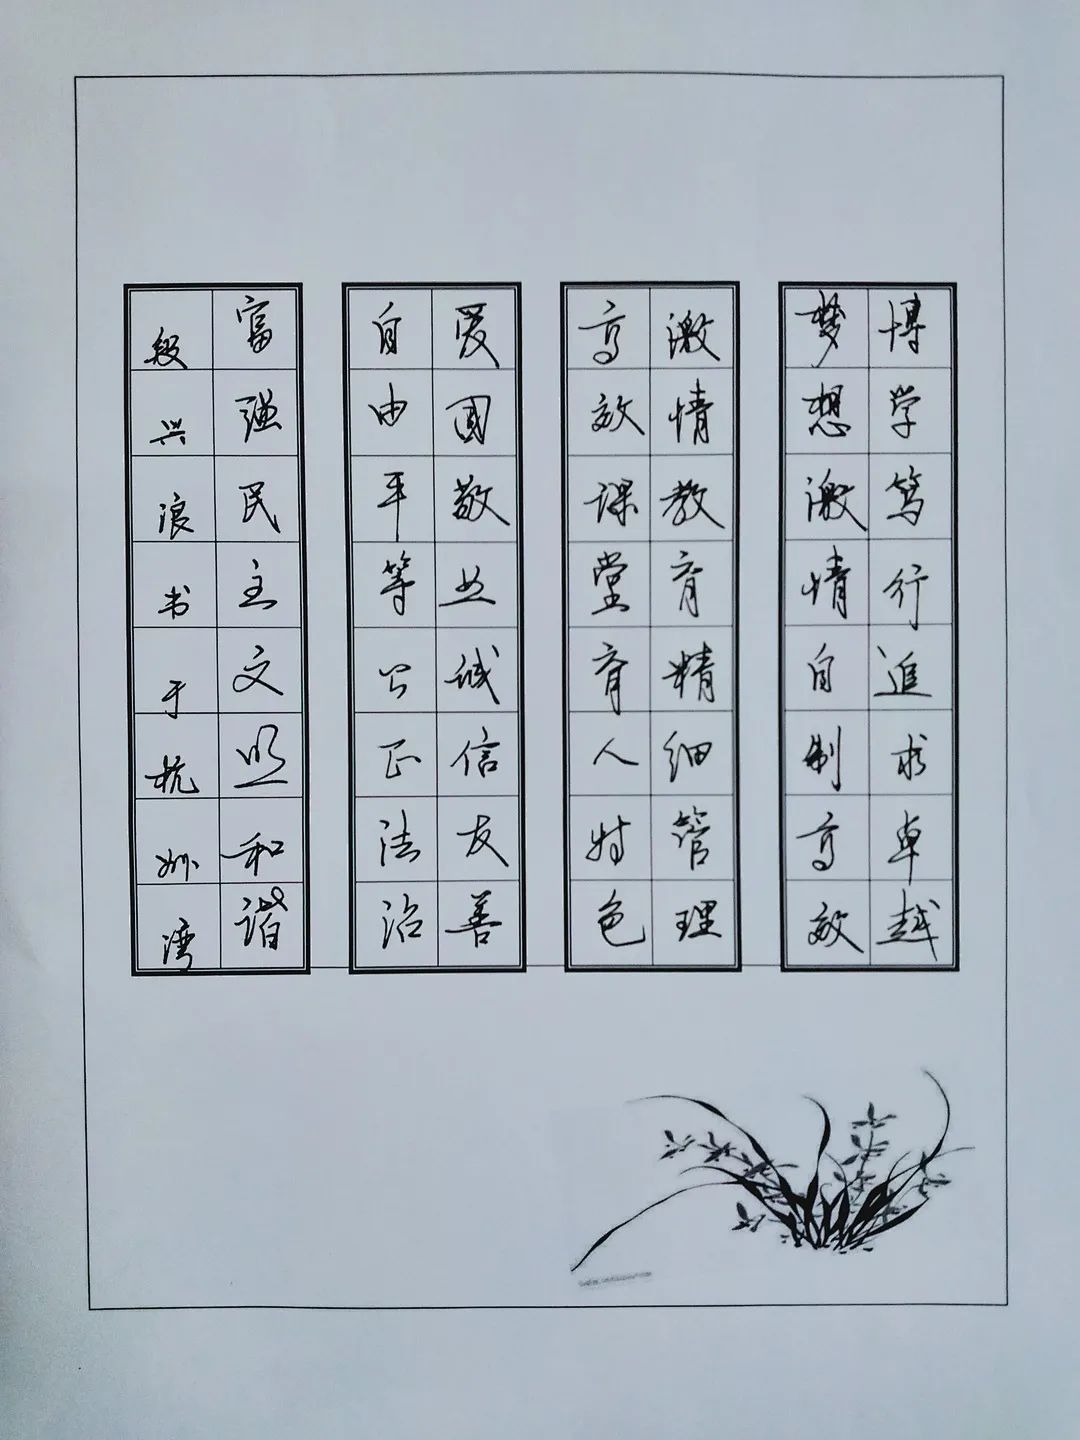 博学笃行追求卓越
梦想激情自制高效
激情教育精细管理
高效课堂育人特色
爱國敬业诚信友善
自由平等公正法治
富强民主文明和谐
段兴浪书于杭州湾